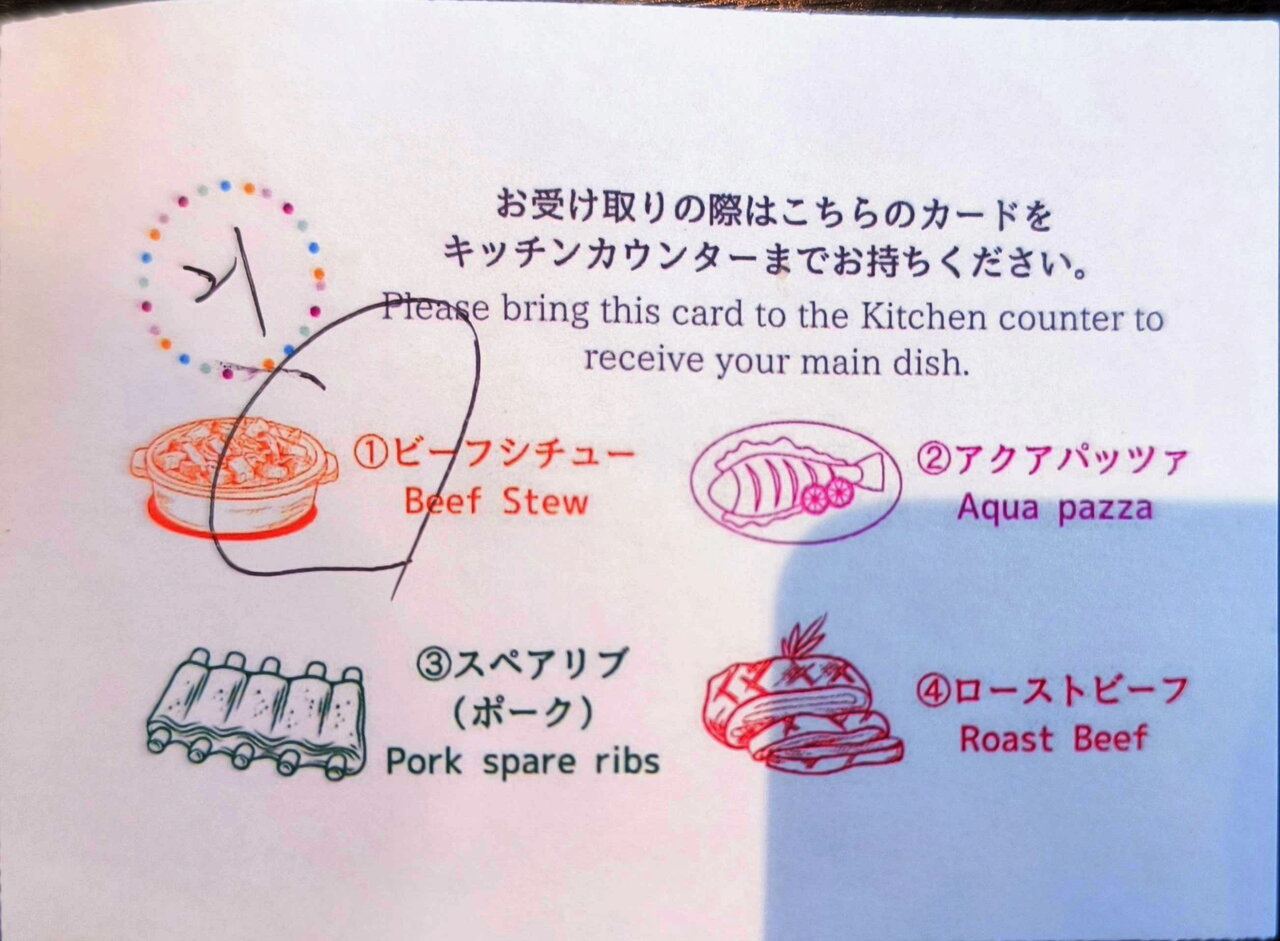 お受け取りの際はこちらのカードを
キッチンカウンターまでお持ちください。
Please bring this card to the Kitchen counter to
receive your main dish.
①ビーフシチュー
Beef Stew
②アクアパッツァ
Aqua pazza
③スペアリブ
（ポーク）
Pork spare ribs
④ローストビーフ
Roast Beef